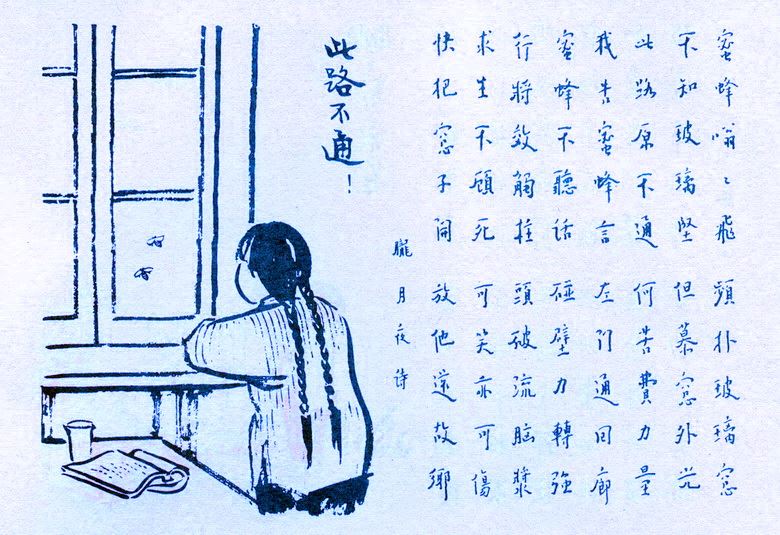 蜜蜂嗡〻飛 頻扑玻璃窓
不知玻璃堅 但慕窓外光
此路原不通 何苦費力量
我告蜜蜂言 左门通回廊
蜜蜂不聽話 碰壁力轉強
行將效觸柱 頭破流脑漿
求生不顧死 可笑亦可傷
快把窓子開 放他故鄉
朧月夜诗
此路不通！